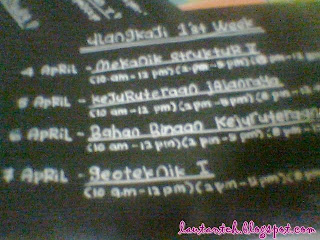 dlangkaji 1st Week
4 APRIL - Mekanik Struktur I
(10 am - 12 pm) (2 pm - 5 pm) (8 pm - 12
5 APRIL - Kejuruteraan Jalanraya
(10 am - 12 pm) (2 pm - 5 pm) (8 pm - 12
6 APRIL - Bahan Binaan Kejuruteraan
(10 am - 12 pm) (2 pm - 5 pm) (8 pm -
7 APRIL - Geoteknik I
(10 a.m - 12 pm) (2 pm - 5 pm) (8
lautanteh.blogspot.com